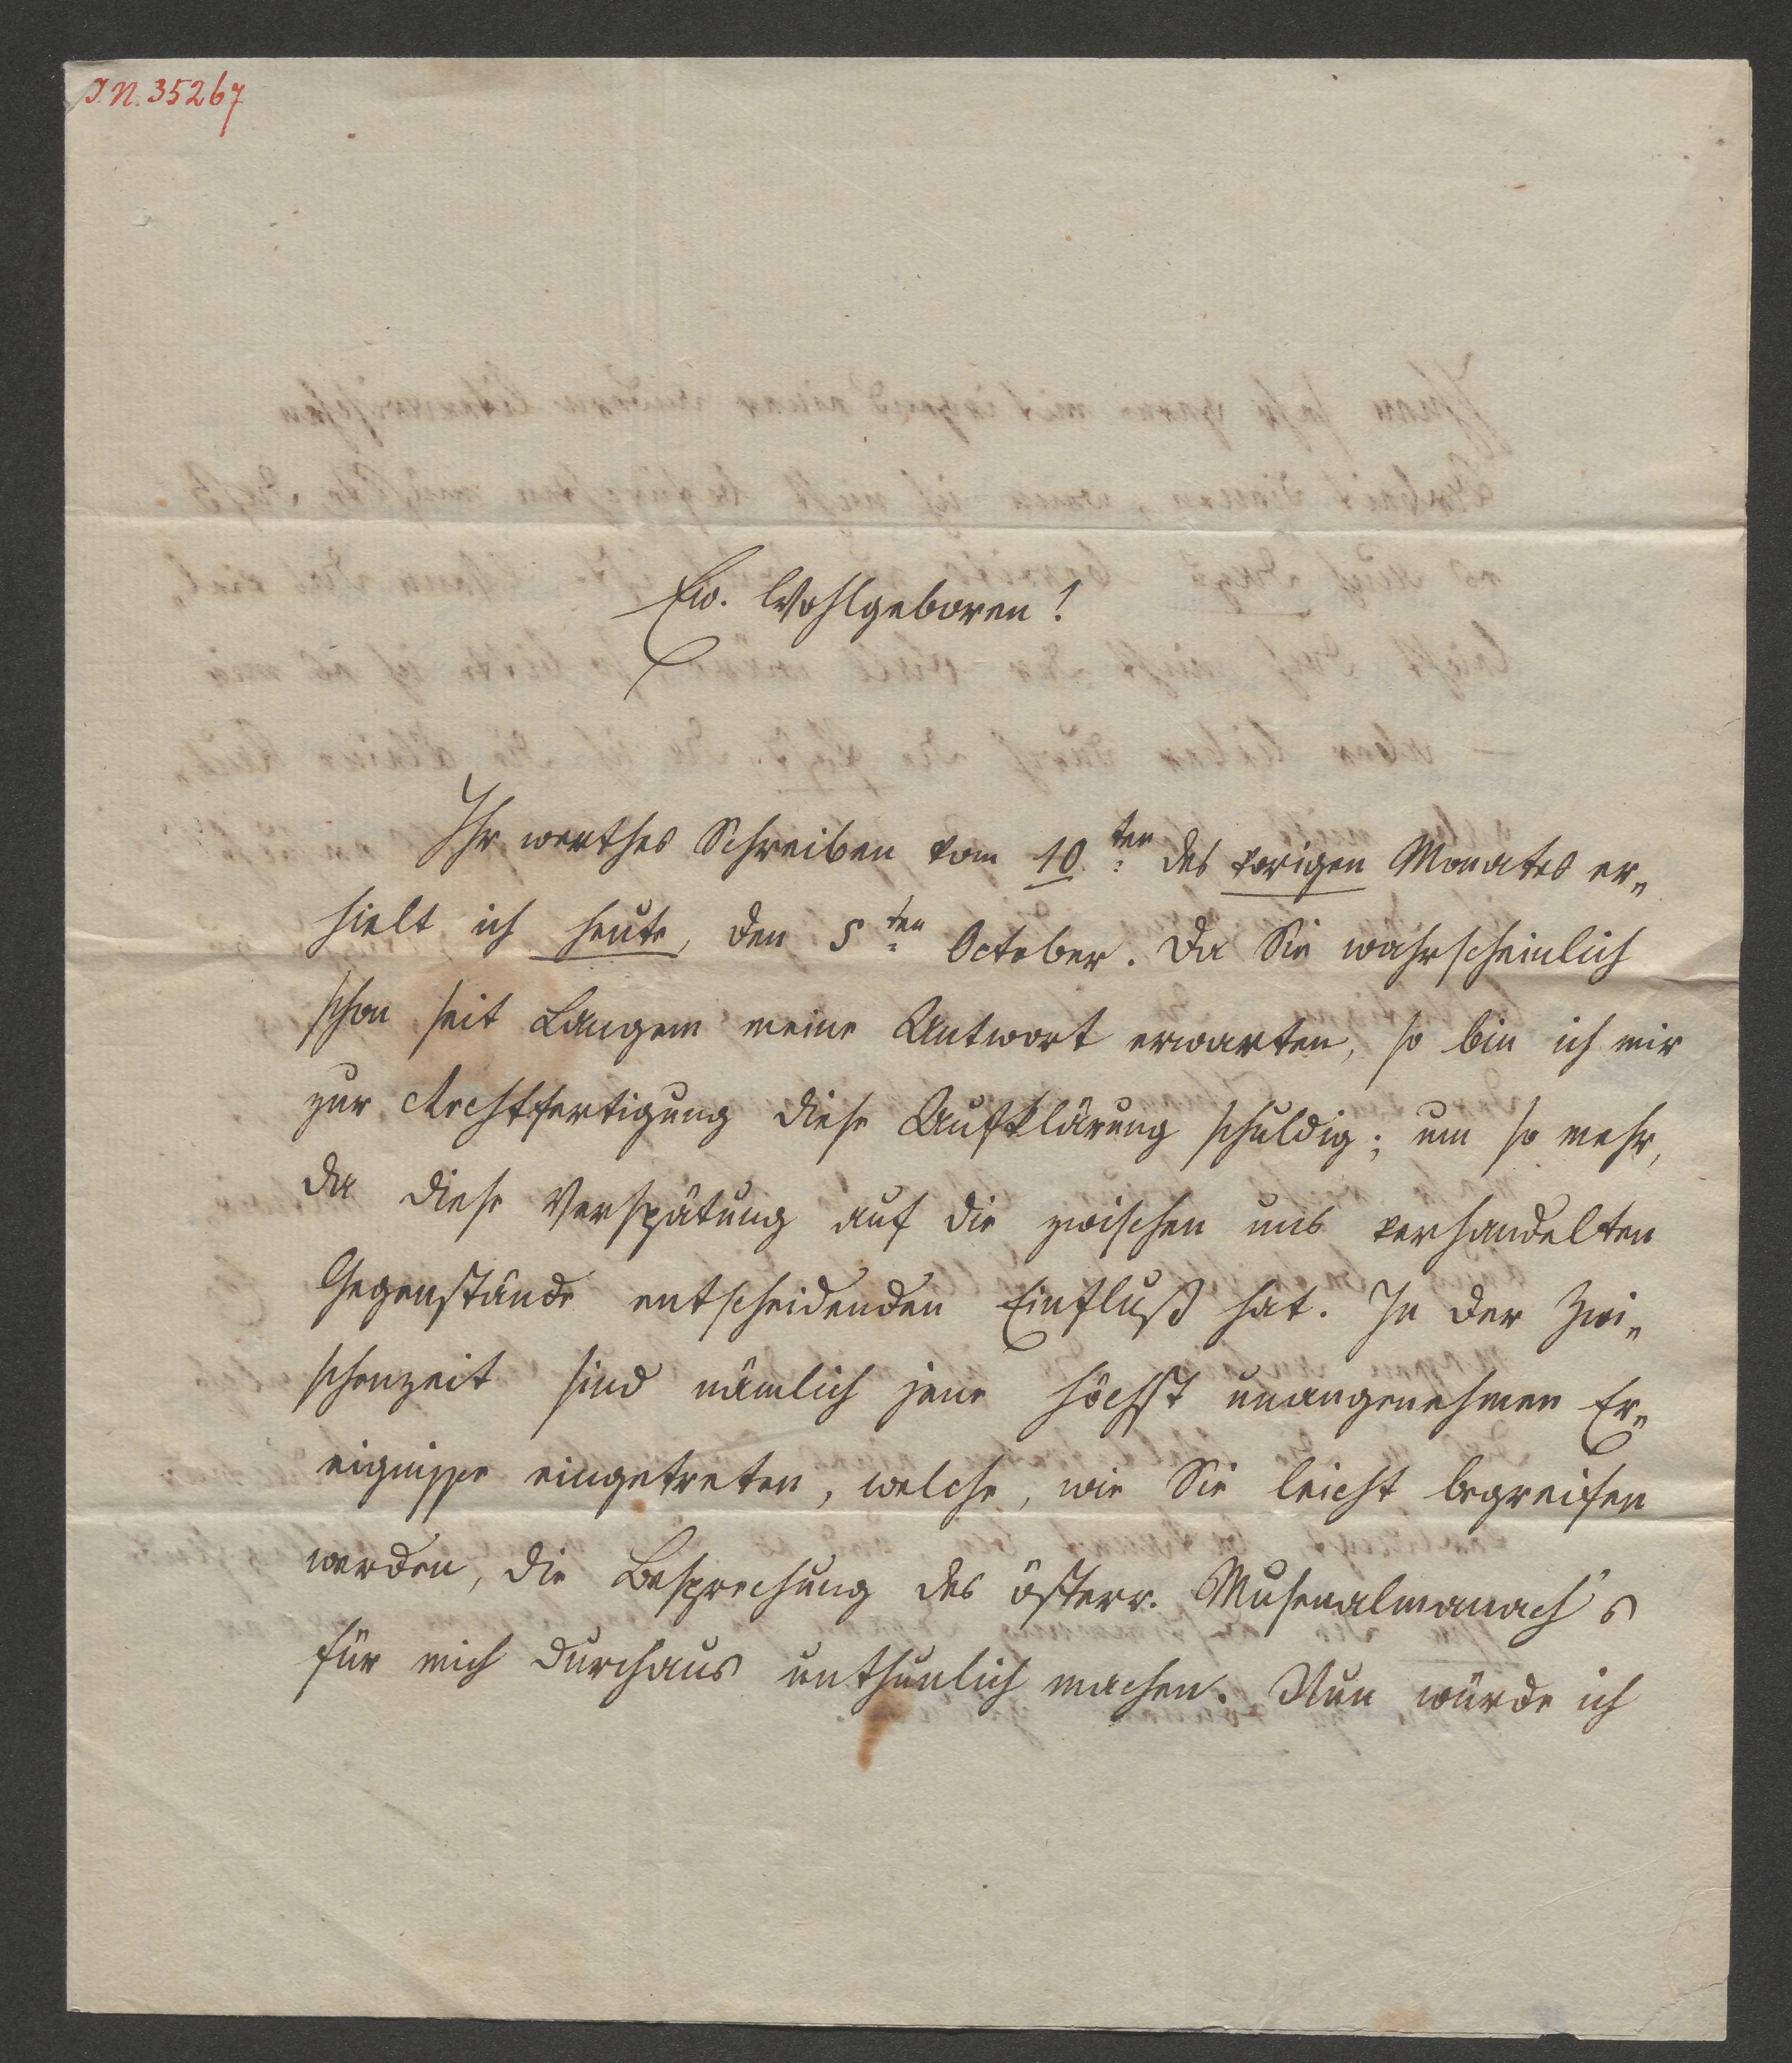 I.N. 35267
Ew. Wohlgeboren!
Ihr werthes Schreiben vom 10ten des vorigen Monates er„
hielt ich heute, den 5ten October. Da Sie wahrscheinlich
schon seit Langem meine Antwort erwarten, so bin ich mir
zur Rechtfertigung diese Aufklärung schuldig; um so mehr,
da diese Verspätung auf die zwischen uns verhandelten
Gegenstände entscheidenden Einfluß hat. In der Zwi„
schenzeit sind nämlich jene höchst unangenehmen Er„
eignisse eingetreten, welche, wie Sie leicht begreifen
werden, die Besprechung des österr. Musenalmanach's
für mich durchaus unthunlich machen. Nun würde ich